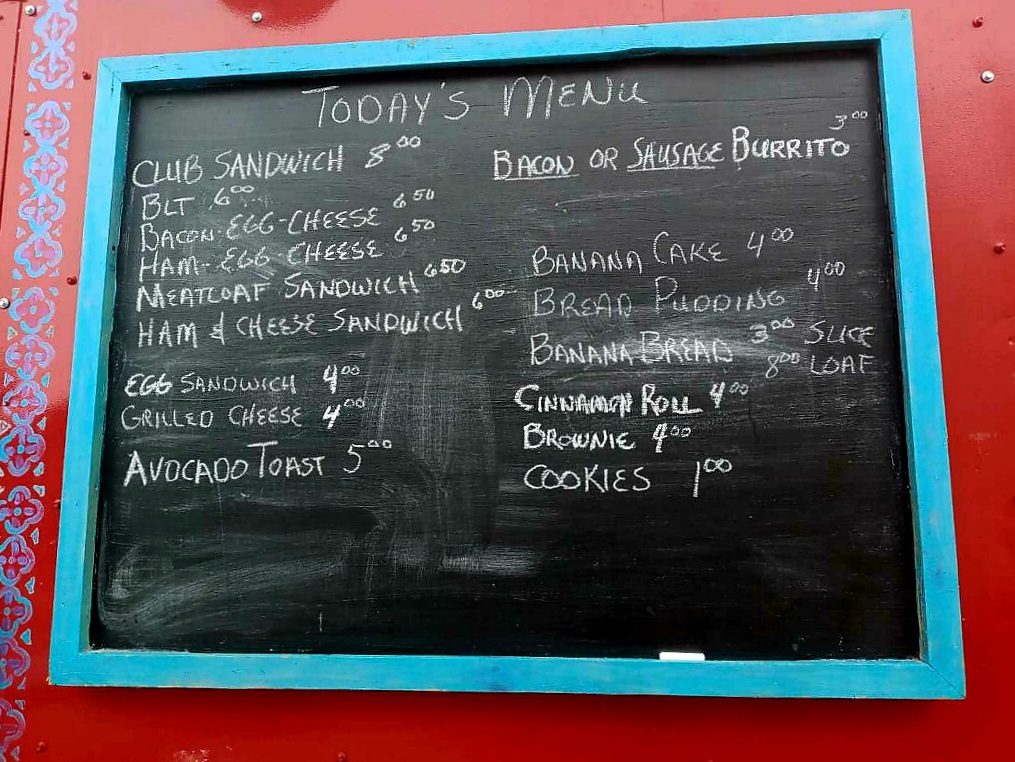 TODAY'S MENU
CLUB SANDWICH 8 00
BLT 6 00
BACON-EGG-CHEESE 6 50
HAM-EGG-CHEESE 6 50
MEATLOAF SANDWICH 6 50
HAM & CHEESE SANDWICH 6 00
EGG SANDWICH 4 00
GRILLED CHEESE 4 00
AVOCADO TOAST 5 00
BACON OR SAUSAGE BURRITO 3 00
BANANA CAKE 4 00
BREAD PUDDING 4 00
BANANA BREAD 3 00 SLICE
8 00 LOAF
CINNAMON ROLL 4 00
BROWNIE 4 00
COOKIES 1 00